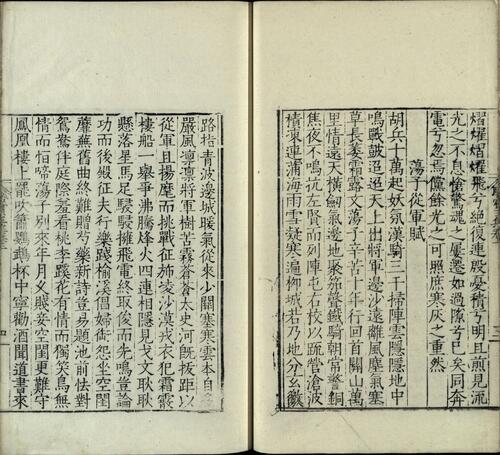 熠燿熠燿飛兮絕復連殷憂積兮明且煎見流
光之不息愴驚魂之屢遷如過隙兮已矣同奔
電兮忽焉儻餘光之可照庶寒灰之重然
蕩子從軍賦
胡兵十萬起妖氛漢騎三千掃陣雲隱隱地中
鳴戰鼓迢迢天上出將軍邊沙遠離風塵氣塞
草長萎霜露文蕩子辛苦十年行回首關山萬
里情遠天橫劒氣邊地聚笳聲鐵騎朝常警銅
焦夜不鳴抗左賢而列陣屯右校以疏營滄波
積凍連蒲海雨雪凝寒遍柳城若乃地分玄徼
路指青波邊城暖氣從來少關塞寒雲本自多
嚴風凛凛將軍樹苦霧蒼蒼太史河既拔距以
從軍且揚麾而挑戰征旆凌沙漠戎衣犯霜霰
樓船一舉爭沸騰烽火四連相隱見戈文耿耿
懸落星馬足駸駸擁飛電終取俊而先鳴豈論
功而後殿征夫行樂踐榆溪倡婦銜怨坐空閨
蘼蕪舊曲終難贈芍藥新詩豈易題池前怯對
鴛鴦伴庭際羞看桃李蹊花有情而獨笑鳥無
情而恒啼蕩子別來年月久賤妾空閨更難守
鳳凰樓上罷吹簫鸚鵡杯中寧勸酒聞道書來